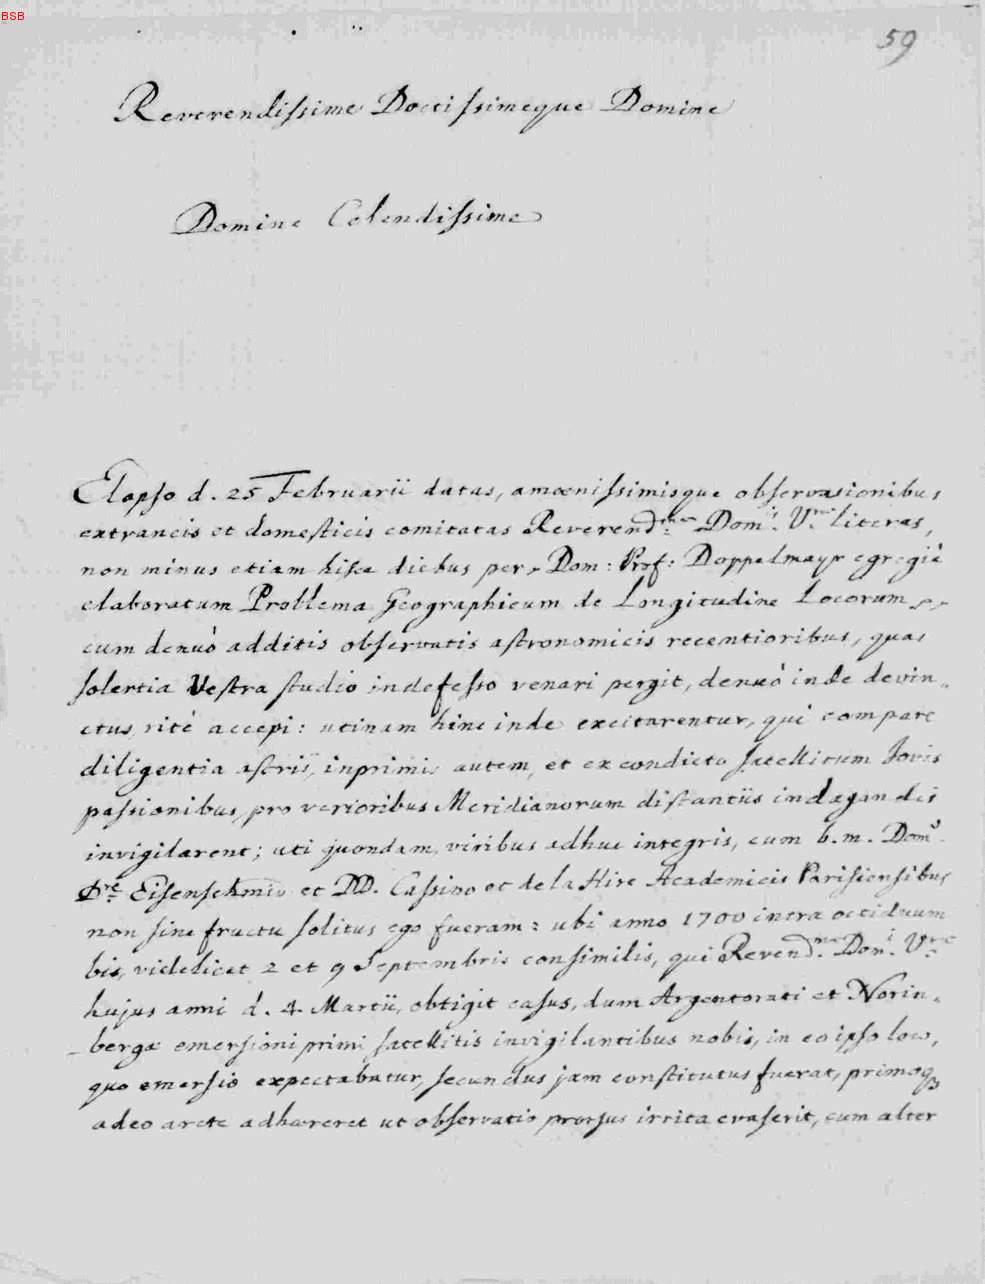 BSB
59
Reverendissime Doctissimeque Domine
Domine Colendissime
Elapso d. 25 Februarii datas, amœnissimisque observationibus
extraneis et domesticis comitatas Reverend.mæ Dom.is V.ræ literas,
non minus etiam hisce diebus per Dom: Prof: Doppelmayr egregiè
elaboratum Problema Geographicum de Longitudine Locorum
cum denuò additis observatis astronomicis recentioribus, quas
solertia Vestra studio indefesso venari pergit, denuò inde devin„
ctus, ritè accepi: utinam hinc inde excitarentur, qui compare
diligentia astris, inprimis autem, et ex condicto satellitum Jovis
passionibus, pro verioribus Meridianorum distantiis indagandis
invigilarent; uti quondam, viribus adhuc integris, cum b. m. Domº.
D.re Eisenschmid et DD. Cassino et de la Hire Academicis Parisiensibus
non sine fructu solitus ego fueram: ubi anno 1700 intra octiduum
bis, videlicet 2 et 9 Septembris consimilis, qui Revend.mæ Dom.i V.ræ
hujus anni d. 4 Martii, obtigit casus, dum Argentorati et Norin„
bergæ emersioni primi satellitis invigilantibus nobis, in eo ipso loco,
quo emersio expectabatur, secundus jam constitutus fuerat, primoq;
adeo arcte adhæreret ut observatio prorsus irrita evaserit, cum alter